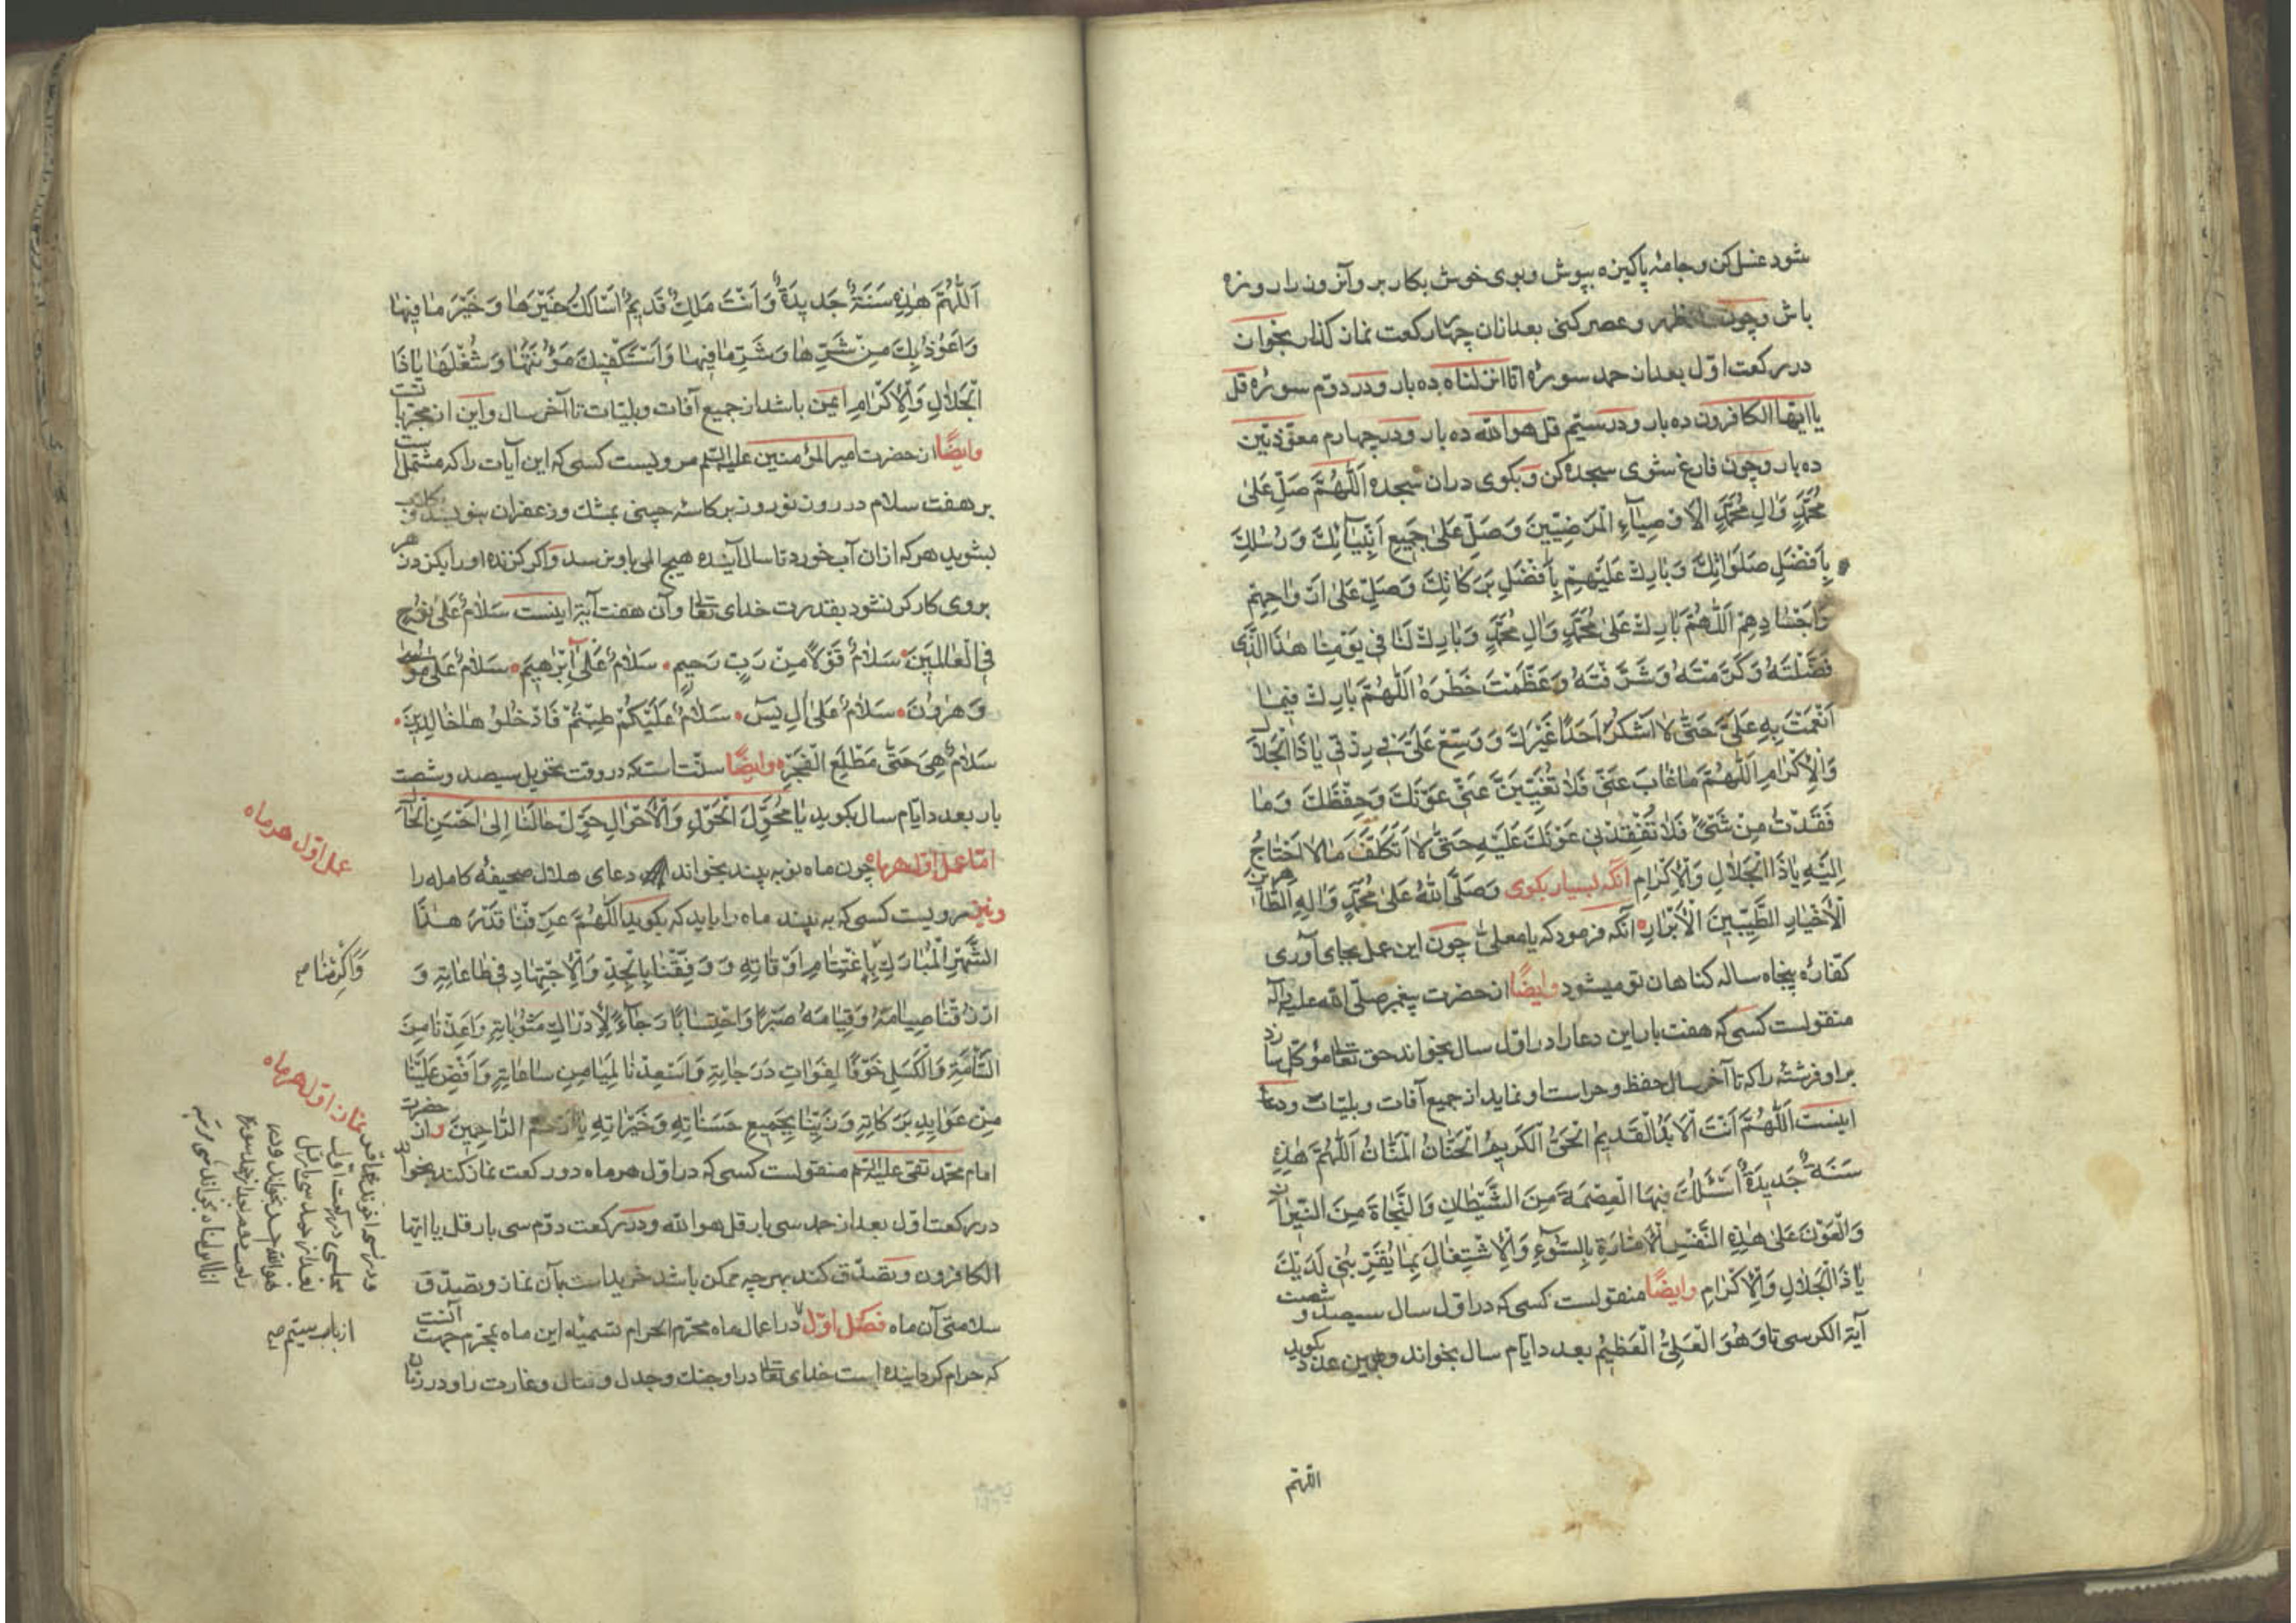 شود غسل کن و جامهٔ پاکیزه بپوش و بوی خوش بکار بر و آنروز را روزه
باش و چون ظهر و عصر کنی بعد از آن چهار رکعت نماز گذار بخوان
در رکعت اوّل بعد از حمد سورهٔ انّا انزلناه ده بار و در دوّم سورهٔ قل
یا ایّها الکافرون ده بار و در سیّم قل هو الله ده بار و در چهارم معوّذتین
ده بار و چون فارغ شوی سجده کن و بکوی در آن سجده اَللّٰهُمَّ صَلِّ عَلیٰ
مُحَمَّدٍ وَاٰلِ مُحَمَّدٍ الْاَوْصِیٰآءِ الْمَرْضِیّینَ وَصَلِّ عَلیٰ جَمیعِ اَنْبِیٰآئِكَ وَرُسُلِكَ
بِاَفْضَلِ صَلَوٰاتِكَ وَبٰارِكْ عَلَیْهِمْ بِاَفْضَلِ بَرَکٰاتِكَ وَصَلِّ عَلیٰ اَرْوٰاحِهِمْ
وَاَجْسٰادِهِمْ اَللّٰهُمَّ بٰارِكْ عَلیٰ مُحَمَّدٍ وَاٰلِ مُحَمَّدٍ وَبٰارِكْ لَنٰا فی یَوْمِنٰا هٰذَا الَّذی
فَضَّلْتَهُ وَکَرَّمْتَهُ وَشَرَّفْتَهُ وَعَظَّمْتَ خَطَرَهُ اَللّٰهُمَّ بٰارِكْ فیمٰا
اَنْعَمْتَ بِهِ عَلَیَّ حَتّیٰ لٰا اَشْکُرَ اَحَدًا غَیْرَكَ وَوَسِّعْ عَلَیَّ فی رِزْقی یٰا ذَا الْجَلٰالِ
وَالْاِکْرٰامِ اَللّٰهُمَّ مٰا غٰابَ عَنّی فَلٰا تُغَیِّبَنَّ عَنّی عَوْنَكَ وَحِفْظَكَ وَمٰا
فَقَدْتُ مِنْ شَیْءٍ فَلٰا تُفْقِدْنی عَوْنَكَ عَلَیْهِ حَتّیٰ لٰا اَتَکَلَّفَ مٰا لٰا اَحْتٰاجُ
اِلَیْهِ یٰا ذَا الْجَلٰالِ وَالْاِکْرٰامِ آنگه بسیار بکوی وَصَلَّی اللّٰهُ عَلیٰ مُحَمَّدٍ وَاٰلِهِ الطّٰاهرین
الْاَخْیٰارِ الطَّیِّبینَ الْاَبْرٰارِ آنگه فرمود که یا معلّی چون این عمل بجای آوری
کفّارهٔ پنجاه ساله کناهان تو میشود وایضًا از حضرت پیغمبر صلّی الله علیه وآله
منقولست کسی که هفت بار این دعا را در اوّل سال بخواند حق تعالی موکّل سازد
بر او فرشتهٔ را که تا آخر سال حفظ و حراست او نماید از جمیع آفات و بلیّات و دعا
اینست اَللّٰهُمَّ اَنْتَ الْاَبَدُ الْقَدیمُ الْحَیُّ الْکَریمُ الْحَنّٰانُ الْمَنّٰانُ اَللّٰهُمَّ هٰذِهِ
سَنَةٌ جَدیدَةٌ اَسْئَلُكَ فیهَا الْعِصْمَةَ مِنَ الشَّیْطٰانِ وَالنَّجٰاةَ مِنَ النّیرٰان
وَالْعَوْنَ عَلیٰ هٰذِهِ النَّفْسِ الْاَمّٰارَةِ بِالسُّوٓءِ وَالْاِشْتِغٰالَ بِمٰا یُقَرِّبُنی لَدَیْكَ
یٰا ذَا الْجَلٰالِ وَالْاِکْرٰامِ وایضًا منقولست کسی که در اوّل سال سیصد و شصت
آیة الکرسی تا وَهُوَ الْعَلِیُّ الْعَظیمُ بعدد ایّام سال بخواند و باین عدد بکوید
اللهمّ
اَللّٰهُمَّ هٰذِهِ سَنَةٌ جَدیدَةٌ وَاَنْتَ مَلِكٌ قَدیمٌ اَسْاَلُكَ خَیْرَهٰا وَخَیْرَ مٰا فیهٰا
وَاَعُوذُ بِكَ مِنْ شَرِّهٰا وَشَرِّ مٰا فیهٰا وَاَسْتَکْفیكَ مَؤُنَتَهٰا وَشُغْلَهٰا یٰا ذَا
الْجَلٰالِ وَالْاِکْرٰامِ ایمن باشد از جمیع آفات و بلیّات تا آخر سال و این از مجرّباتست
وایضًا از حضرت امیر المؤمنین علیه السّلم مرویست کسی که این آیات را که مشتملست
بر هفت سلام در روز نوروز بر کاسهٔ چینی بمشك و زعفران بنویسد و
بشوید هر که از آن آب خورد تا سال آینده هیچ المی باو نرسد و اکر کزنده او را بکزد زهر
بر وی کارکر نشود بقدرت خدای تعالی و آن هفت آیة اینست سَلٰامٌ عَلیٰ نُوحٍ
فِی الْعٰالَمینَ سَلٰامٌ قَوْلًا مِنْ رَبٍّ رَحیمٍ سَلٰامٌ عَلیٰٓ اِبْرٰهیمَ سَلٰامٌ عَلیٰ مُوسیٰ
وَهٰرُونَ سَلٰامٌ عَلیٰ اٰلِ یٰسٓ سَلٰامٌ عَلَیْکُمْ طِبْتُمْ فَادْخُلُوهٰا خٰالِدینَ
سَلٰامٌ هِیَ حَتّیٰ مَطْلَعِ الْفَجْرِ وایضًا سنّت است که در وقت تحویل سیصد و شصت
بار بعدد ایّام سال بکوید یٰا مُحَوِّلَ الْحَوْلِ وَالْاَحْوٰالِ حَوِّلْ حٰالَنٰا اِلیٰ اَحْسَنِ الْحٰالِ
امّا عمل اوّل هر ماه چون ماه نو به بیند بخواند دعای هلال صحیفهٔ کامله را
ونیز مرویست کسی که به بیند ماه را باید که بکوید اَللّٰهُمَّ عَرِّفْنٰا قَدْرَ هٰذَا
الشَّهْرِ الْمُبٰارَكِ بِاغْتِنٰامِ اَوْقٰاتِهِ وَوَفِّقْنٰا بِالْجِدِّ وَالْاِجْتِهٰادِ فی طٰاعٰاتِهِ وَ
ارْزُقْنٰا صِیٰامَهُ وَقِیٰامَهُ صَبْرًا وَاحْتِسٰابًا رَجٰآءً لِاِدْرٰاكِ مَثُوبٰاتِهِ وَاَعِذْنٰا مِنَ
السَّأْمَةِ وَالْکَسَلِ خَوْفًا لِفَوٰاتِ دَرَجٰاتِهِ وَاَسْعِدْنٰا لِمَیٰامِنِ سٰاعٰاتِهِ وَاَفِضْ عَلَیْنٰا
مِنْ عَوٰایِدِ بَرَکٰاتِهِ وَزَیِّنّٰا بِجَمیعِ حَسَنٰاتِهِ وَخَیْرٰاتِهِ یٰا اَرْحَمَ الرّٰاحِمینَ و از حضرت
امام محمّد تقی علیه السّلم منقولست کسی که در اوّل هر ماه دو رکعت نماز کند بخواند
در رکعت اوّل بعد از حمد سی بار قل هو الله و در رکعت دوّم سی بار قل یا ایّها
الکافرون و تصدّق کند بهر چه ممکن باشد خریده است بآن نماز و تصدّق
سلامتی آن ماه فصل اوّل در اعمال ماه محرّم الحرام تسمیهٔ این ماه بمحرّم جهت آنست
که حرام کردانیده است خدای تعالی در او جنك و جدل و قتال و غارت را و در زمان
عمل اوّل هر ماه
وَاَکْرِمْنٰا
نماز اوّل هر ماه